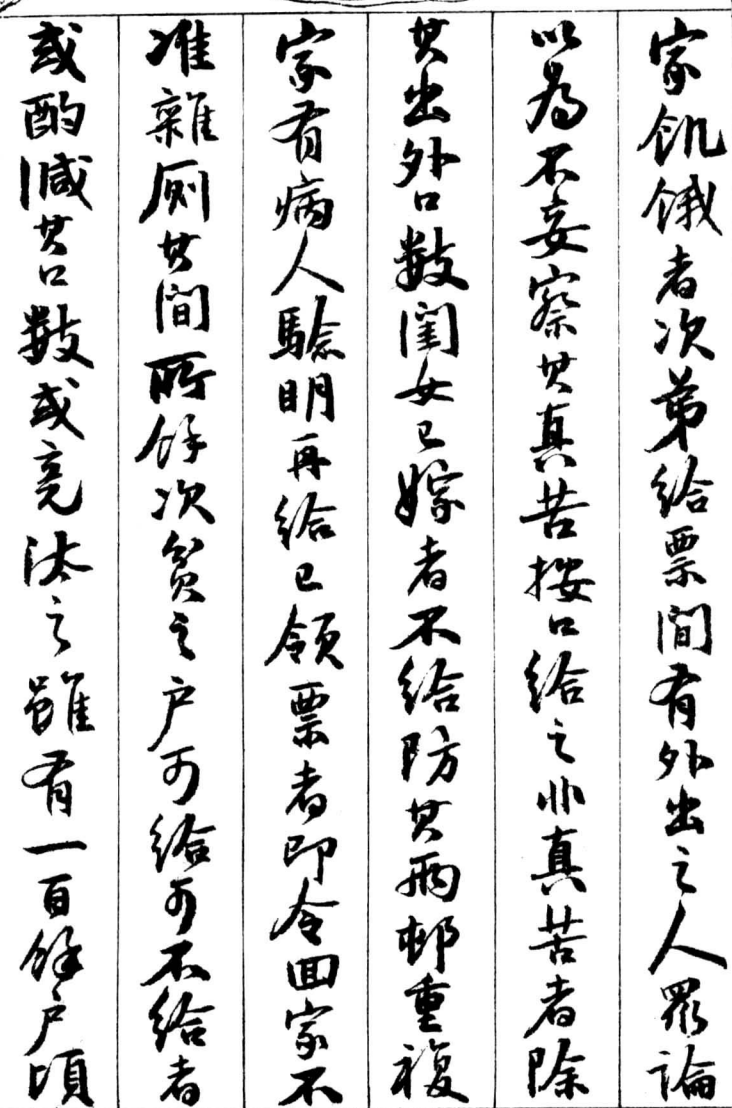 家飢餓者次第給票間有外出之人眾論
以為不妄察其真苦按口給之非真苦者除
其出外口數閨女已嫁者不給防其兩邨重複
家有病人驗明再給已領票者即令回家不
准雜厠其間所餘次貧之户可給可不給者
或酌減其口數或竟汰之雖有一百餘户頃